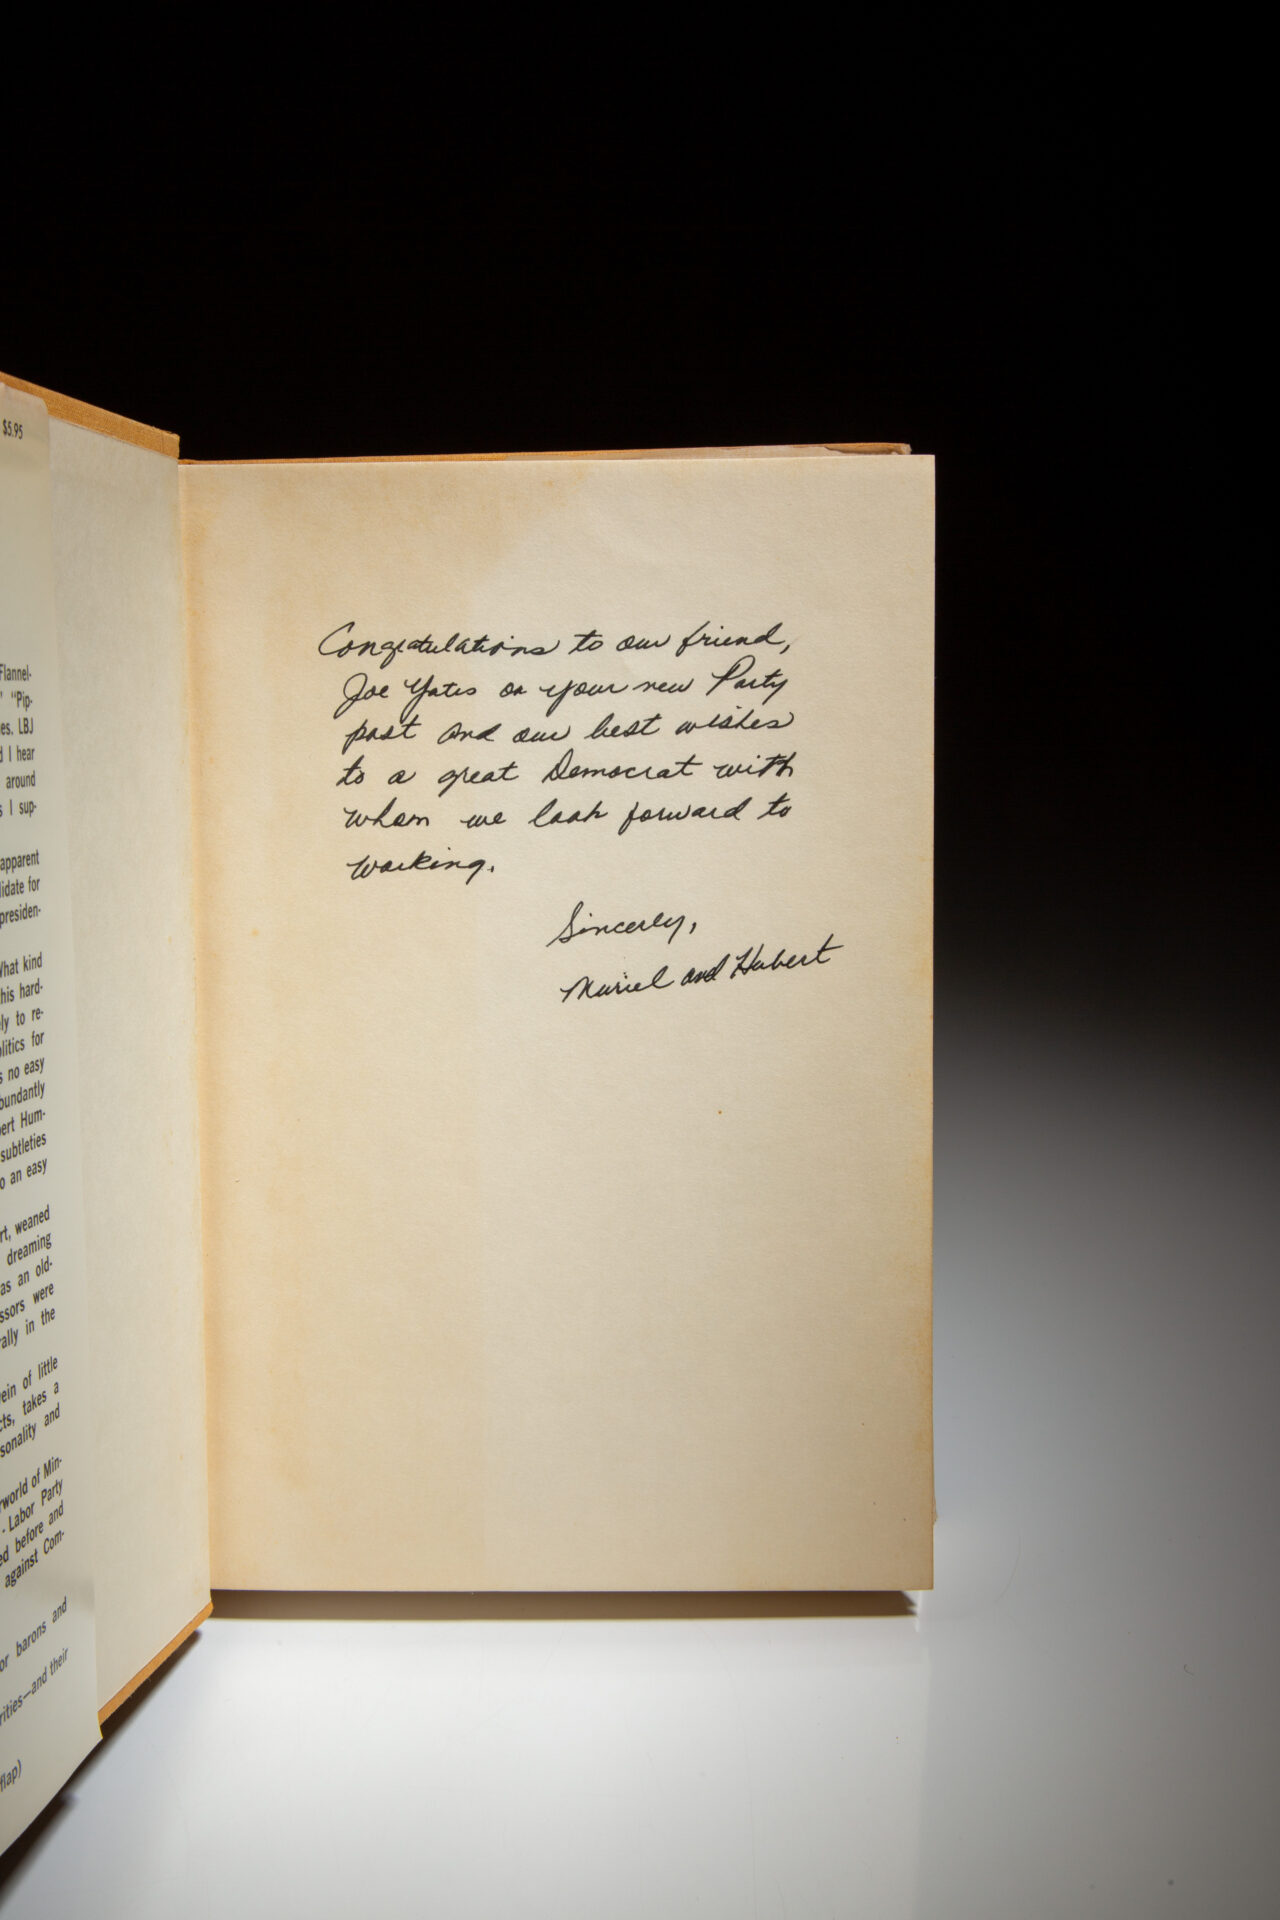 $5.95
Flannel-
" "Pip-
es. LBJ
d I hear
around
s I sup-
apparent
lidate for
presiden-
What kind
his hard-
ly to re-
olitics for
s no easy
bundantly
ert Hum-
subtleties
o an easy
rt, weaned
dreaming
as an old-
ssors were
rally in the
ein of little
cts, takes a
sonality and
rworld of Min-
- Labor Party
ed before and
against Com-
or barons and
rities—and their
flap)
Congratulations to our friend,
Joe Yates on your new Party
post and our best wishes
to a great Democrat with
whom we look forward to
working.
Sincerly,
Muriel and Hubert